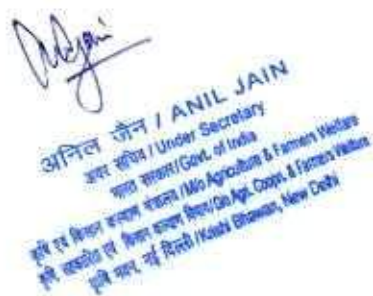 अनिल जैन / ANIL JAIN
अवर सचिव / Under Secretary
भारत सरकार/Govt. of India
कृषि एवं किसान कल्याण मंत्रालय/M/o Agriculture & Farmers Welfare
कृषि सहकारिता एवं किसान कल्याण विभाग/D/o Agri. Coopn. & Farmers Welfare
कृषि भवन, नई दिल्ली/Krishi Bhawan, New Delhi